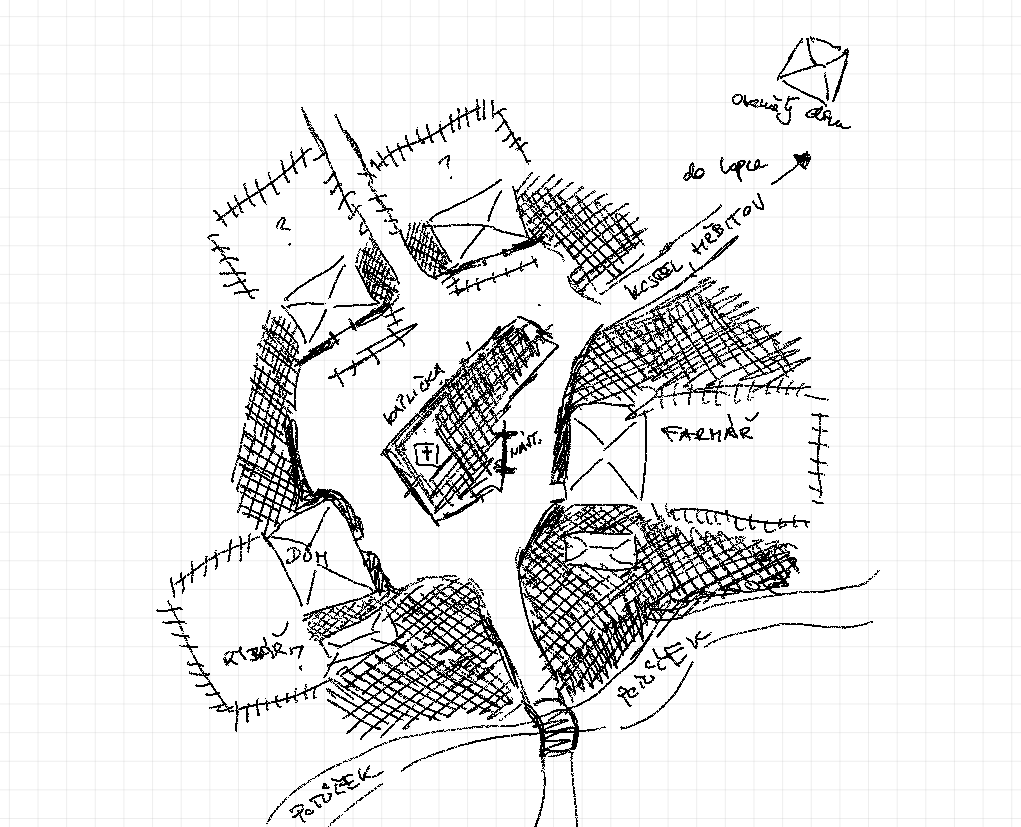 dům
?
?
do kopce
KOSTEL, HŘBITOV
KAPLIČKA
NÁST.
FARMÁŘ
DŮM
RYBÁŘ?
POTŮČEK
POTŮČEK